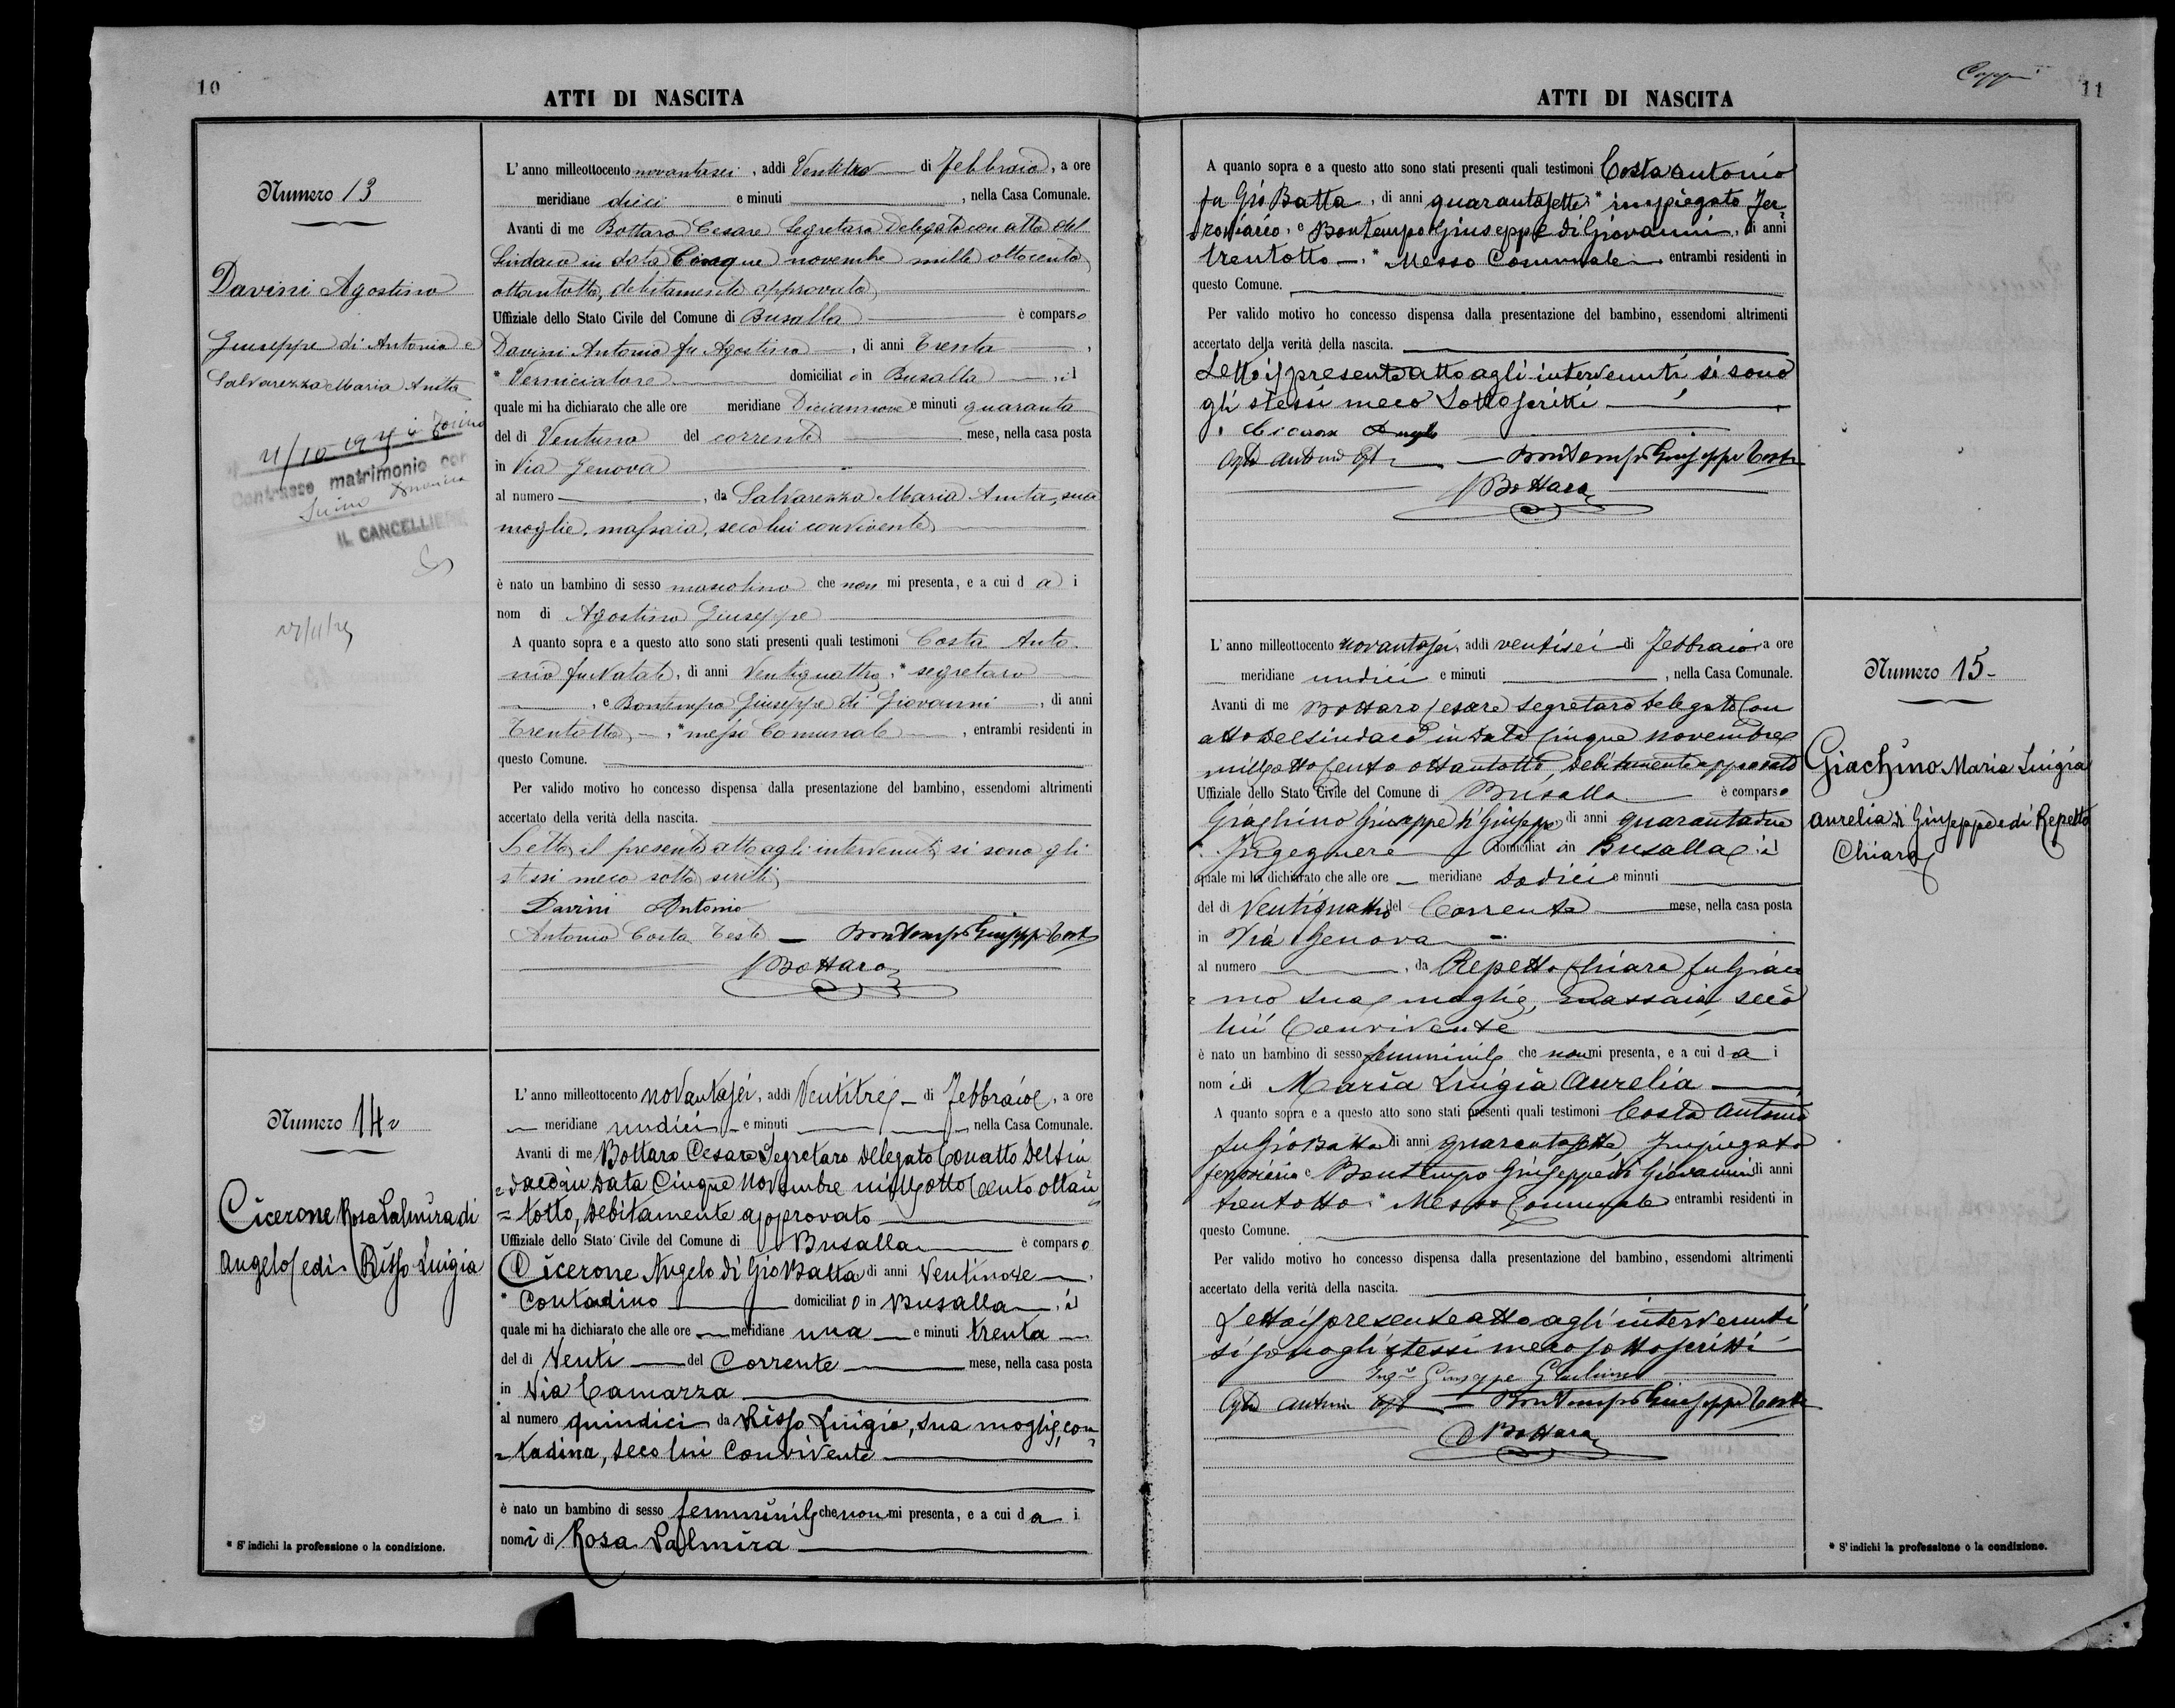 10
ATTI DI NASCITA
Numero 13
Davini Agostino
Giuseppe di Antonio e
Salvarezza Maria Anita
Contrasse matrimonio con
IL CANCELLIERE
L'anno milleottocento novantasei, addi Ventitre di Febbraio, a ore
meridiane dieci e minuti , nella Casa Comunale.
Avanti di me Bottaro Cesare Segretaro Delegato con atto del
Sindaco in data Cinque novembre mille ottocento
ottantotto, debitamente approvato
Uffiziale dello Stato Civile del Comune di Busalla è comparso
Davini Antonio fu Agostino, di anni Trenta,
* Verniciatore domiciliato in Busalla, il
quale mi ha dichiarato che alle ore meridiane Diciannove e minuti quaranta
del di Ventuno del corrente mese, nella casa posta
in Via Genova
al numero , da Salvarezza Maria Anita, sua
moglie, massaia, seco lui convivente
è nato un bambino di sesso mascolino che non mi presenta, e a cui da i
nom di Agostino Giuseppe
A quanto sopra e a questo atto sono stati presenti quali testimoni Costa Anto
nio fu Natale, di anni Ventiquattro, * segretaro
, e Bontempo Giuseppe di Giovanni, di anni
Trentotto, * messo Comunale, entrambi residenti in
questo Comune.
Per valido motivo ho concesso dispensa dalla presentazione del bambino, essendomi altrimenti
accertato della verità della nascita.
Letto il presente atto agli intervenuti si sono gli
stessi meco sotto scritti
Davini Antonio
Antonio Costa Teste — Bontempo Giuseppe Teste
Bottaro
Numero 14
Cicerone Rosa Palmira di
Angelo e di Risso Luigia
L'anno milleottocento novantasei, addi Ventitre di Febbraio, a ore
meridiane undici e minuti nella Casa Comunale.
Avanti di me Bottaro Cesare Segretaro Delegato Con atto Del Sin
=daco in Data Cinque Novembre mille otto Cento ottan
=totto, Debitamente approvato
Uffiziale dello Stato Civile del Comune di Busalla è comparso
Cicerone Angelo di Gio Batta di anni Ventinove,
* Contadino domiciliato in Busalla, il
quale mi ha dichiarato che alle ore meridiane una e minuti trenta
del di Venti del Corrente mese, nella casa posta
in Via Camarza
al numero quindici da Risso Luigia, sua moglie, con
=tadina, seco lui Convivente
è nato un bambino di sesso femminile che non mi presenta, e a cui da i
nomi di Rosa Palmira
* S'indichi la professione o la condizione.
11
ATTI DI NASCITA
A quanto sopra e a questo atto sono stati presenti quali testimoni Costa Antonio
fu Gio Batta, di anni quarantasette * impiegato Fer=
=roviario, e Bontempo Giuseppe di Giovanni, di anni
trentotto, * Messo Comunale entrambi residenti in
questo Comune.
Per valido motivo ho concesso dispensa dalla presentazione del bambino, essendomi altrimenti
accertato della verità della nascita.
Letto il presente atto agli intervenuti si sono
gli stessi meco Sottoscritti
Cicerone Angelo
Antonio — Bontempo Giuseppe Teste
Bottaro
L'anno milleottocento novantasei, addi ventisei di Febbraio a ore
meridiane undici e minuti , nella Casa Comunale.
Avanti di me Bottaro Cesare Segretaro Delegato Con
atto Del Sindaco in Data Cinque Novembre
mille otto Cento ottantotto, Debitamente approvato
Uffiziale dello Stato Civile del Comune di Busalla è comparso
Giaghino Giuseppe di Giuseppe di anni quarantadue
* Ingegnere domiciliato in Busalla il
quale mi ha dichiarato che alle ore meridiane Dodici e minuti
del di Ventiquattro del Corrente mese, nella casa posta
in Via Genova
al numero , da Repetto Chiara fu Giaco
=mo sua moglie, massaia, seco
lui Convivente
è nato un bambino di sesso femminile che non mi presenta, e a cui da i
nomi di Maria Luigia Aurelia
A quanto sopra e a questo atto sono stati presenti quali testimoni Costa Antonio
fu Gio Batta di anni quarantasette, Impiegato
ferroviario e Bontempo Giuseppe di Giovanni di anni
trentotto * Messo Comunale entrambi residenti in
questo Comune.
Per valido motivo ho concesso dispensa dalla presentazione del bambino, essendomi altrimenti
accertato della verità della nascita.
Letto il presente atto agli intervenuti
si sono gli stessi meco sottoscritti
Giuseppe Giachino
Antonio — Bontempo Giuseppe Teste
Bottaro
Numero 15
Giachino Maria Luigia
Aurelia di Giuseppe e di Repetto
Chiara
* S'indichi la professione o la condizione.